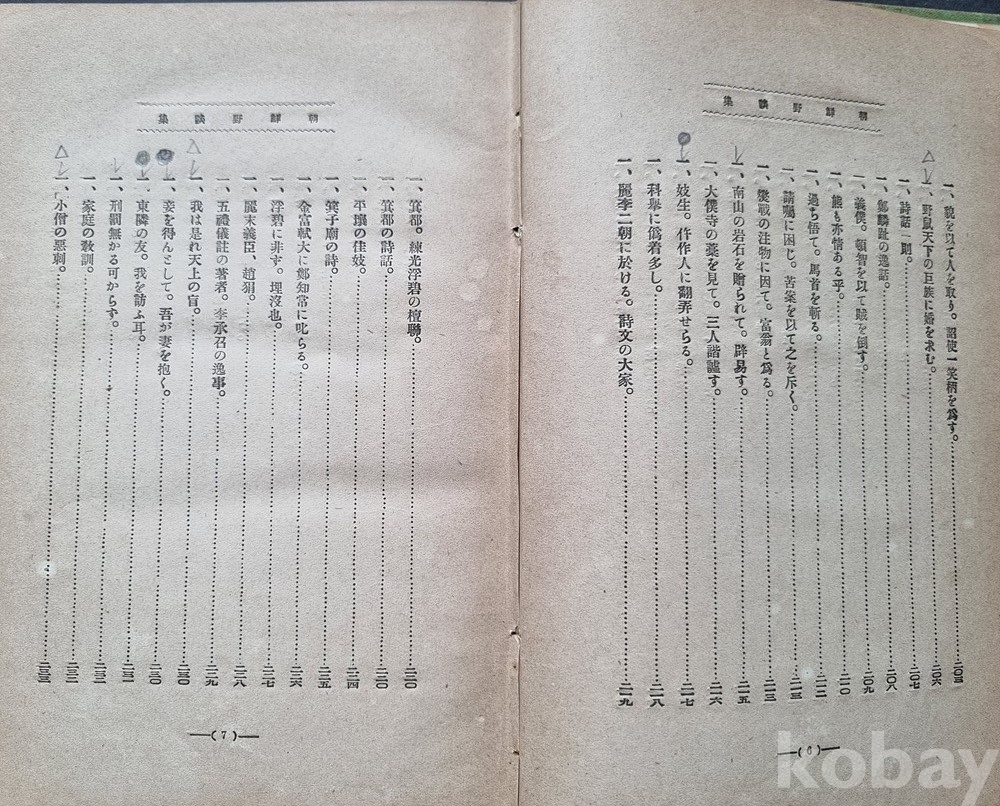 朝鮮野談集
一、貌を以て人を取り。詔使一笑柄を爲す。……二〇五
一、野鼠天下の巨族に婚を求む。……二〇六
一、詩話一則。……二〇七
一、麟趾の逸話。……二〇八
一、義僕。頓智を以て賊を倒す。……二〇九
一、熊も亦情ある乎。……二一〇
一、過ち悟て。馬首を斬る。……二一二
一、請囑に困じ。苦案を以て之を斥く。……二一三
一、の注物に因て。富翁と爲る。……二一三
一、南山の岩石を贈られて。辟易す。……二一五
一、大僕寺の藁を見て。三人諧謔す。……二一六
一、妓生。作人に翻弄せらる。……二一七
一、科擧に僞着多し。……二一八
一、麗李二朝に於ける。詩文の大家。……二一九
(6)
朝鮮野談集
一、箕都。練光浮碧の楹聯。……二二〇
一、箕都の詩話。……二二〇
一、平壤の佳妓。……二二四
一、箕子廟の詩。……二二五
一、金富軾大に鄭知常に叱らる。……二二六
一、浮碧に非ず。埋沒也。……二二七
一、麗末義臣、趙狷。……二二八
一、五禮儀註の著者。李承召の逸事。……二二九
一、我は是れ天上の盲。……二三〇
一、妾を得んとして。吾が妻を抱く。……二三〇
一、東隣の友。我を訪ふ耳。……二三一
一、刑罰無かる可からず。……二三二
一、家庭の敎訓。……二三二
一、小僧の惡刺。……二三三
(7)
kobay